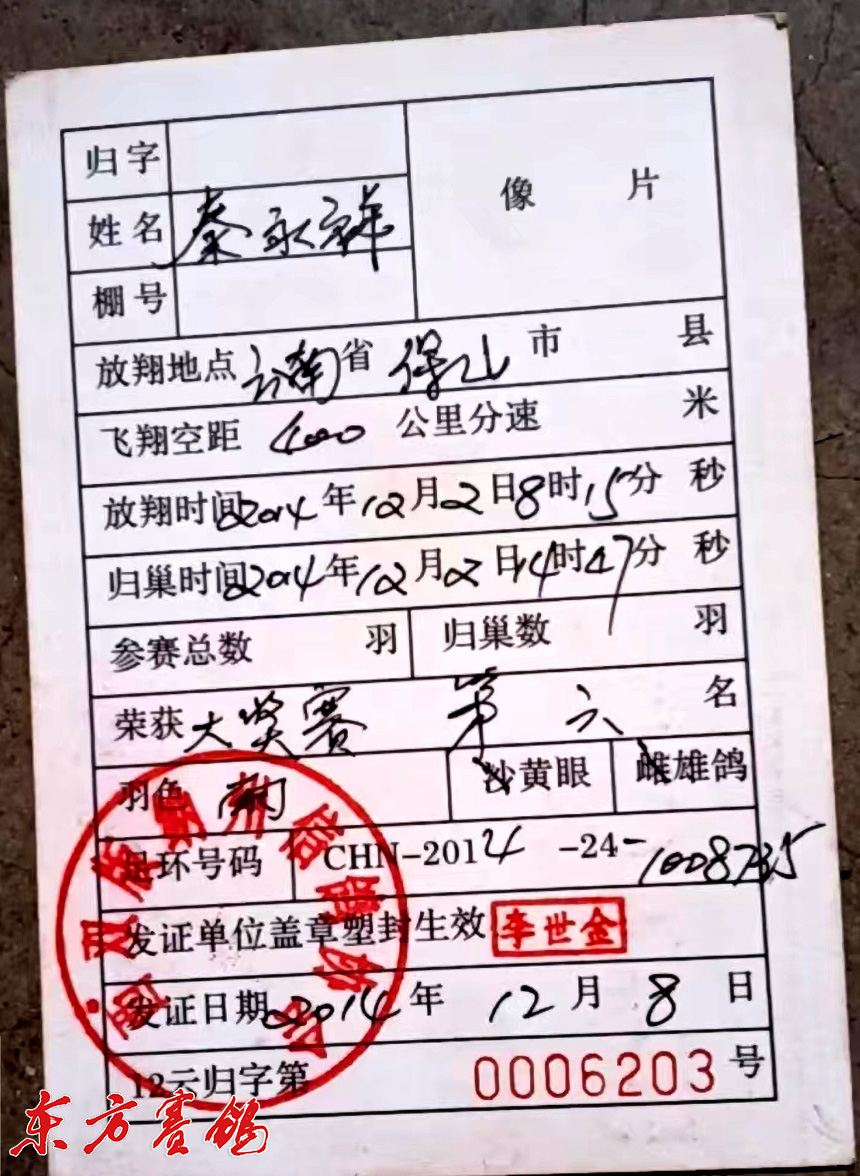 归字
像 片
姓名 秦永祥
棚号
放翔地点 云南 省 保山 市 县
飞翔空距 400 公里分速 米
放翔时间 2014 年 12 月 2 日 8 时 15 分 秒
归巢时间 2014 年 12 月 2 日 14 时 47 分 秒
参赛总数 羽 归巢数 羽
荣获 大奖赛 第 六 名
羽色 雨 沙黄眼 雌雄鸽
足环号码 CHN-2014 -24-1008735
发证单位盖章塑封生效 李世金
发证日期 2014 年 12 月 8 日
12云归字第 0006203 号
信鸽协会
东方赛鸽